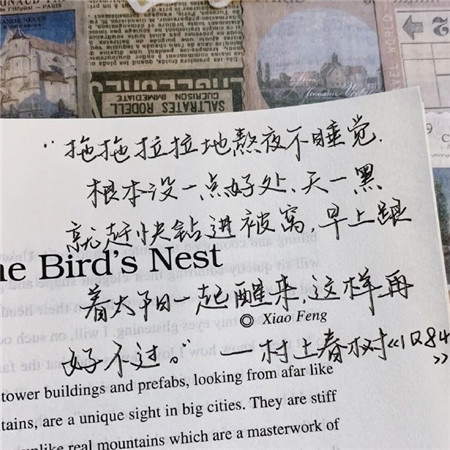 SALTRATES RODELL
GUERISON IMMEDIATE
“拖拖拉拉地熬夜不睡觉.
根本没一点好处、天一黑
就赶快钻进被窝,早上跟
he Bird's Nest
着太阳一起醒来,这样再
◎ Xiao Feng
好不过。”——村上春树《1Q84》
tower buildings and prefabs, looking from afar like
tains, are a unique sight in big cities. They are stiff
unlike real mountains which are a masterwork of